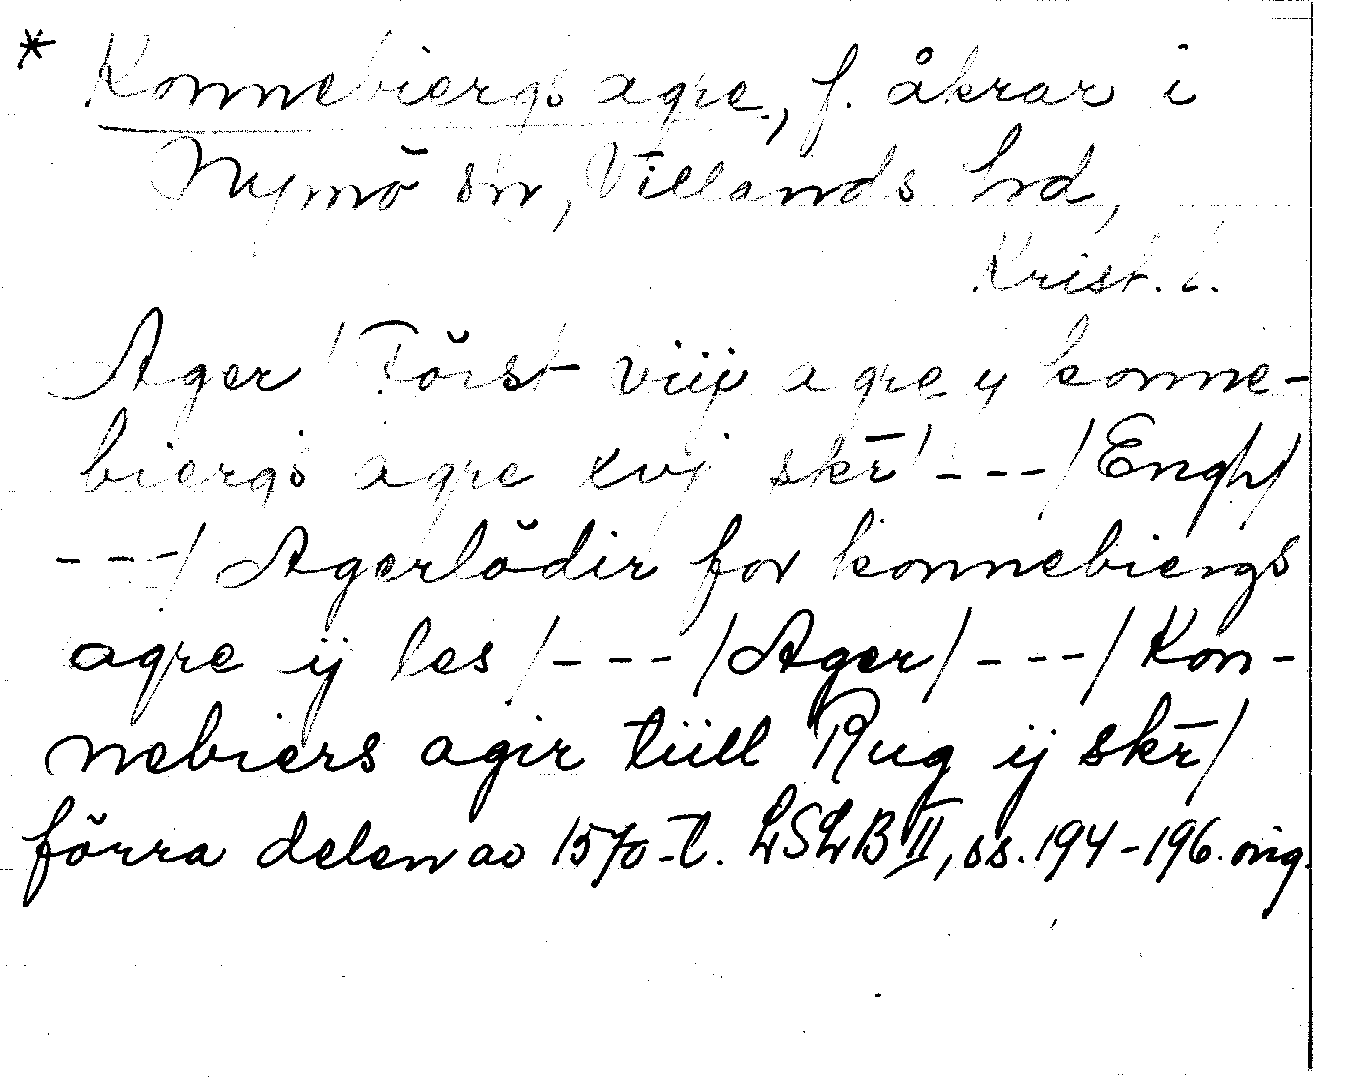 * Konnebiergs agre, f. åkrar i
Nymö sn, Villands hd,
Krist. l.
Ager / Först viij agre y konne-
biergs agre xvj skr̄ / - - - / Engh /
- - - / Agerlödir for konnebiergs
agre ij les / - - - / Ager / - - - / Kon-
nebiers agir tiill Rug ij skr̄ /
förra delen av 1570-t. LSLB II, ss. 194-196. orig.